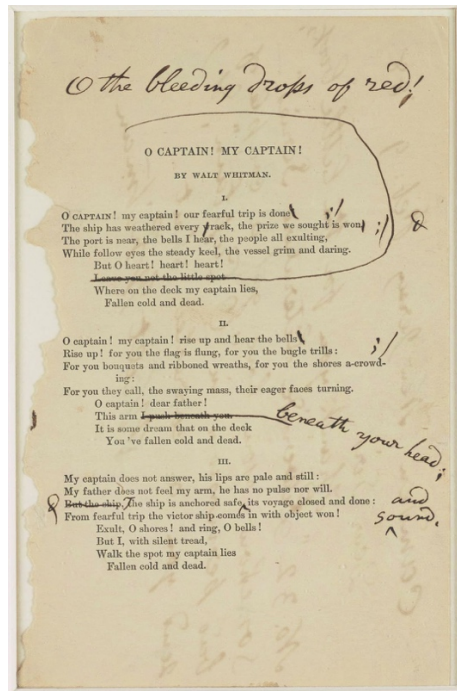 O the bleeding drops of red!
O CAPTAIN! MY CAPTAIN!
BY WALT WHITMAN.
I.
O CAPTAIN! my captain! our fearful trip is done ;/
The ship has weathered every wrack, the prize we sought is won ;/
The port is near, the bells I hear, the people all exulting,
While follow eyes the steady keel, the vessel grim and daring.
But O heart! heart! heart!
Leave you not the little spot
Where on the deck my captain lies,
Fallen cold and dead.
II.
O captain! my captain! rise up and hear the bells ;/
Rise up! for you the flag is flung, for you the bugle trills:
For you bouquets and ribboned wreaths, for you the shores a-crowd-
ing:
For you they call, the swaying mass, their eager faces turning.
O captain! dear father!
This arm I push beneath you. beneath your head;
It is some dream that on the deck
You 've fallen cold and dead.
III.
My captain does not answer, his lips are pale and still:
My father does not feel my arm, he has no pulse nor will.
But the ship, The ship is anchored safe, its voyage closed and done: and
From fearful trip the victor ship comes in with object won! sound,
Exult, O shores! and ring, O bells!
But I, with silent tread,
Walk the spot my captain lies
Fallen cold and dead.